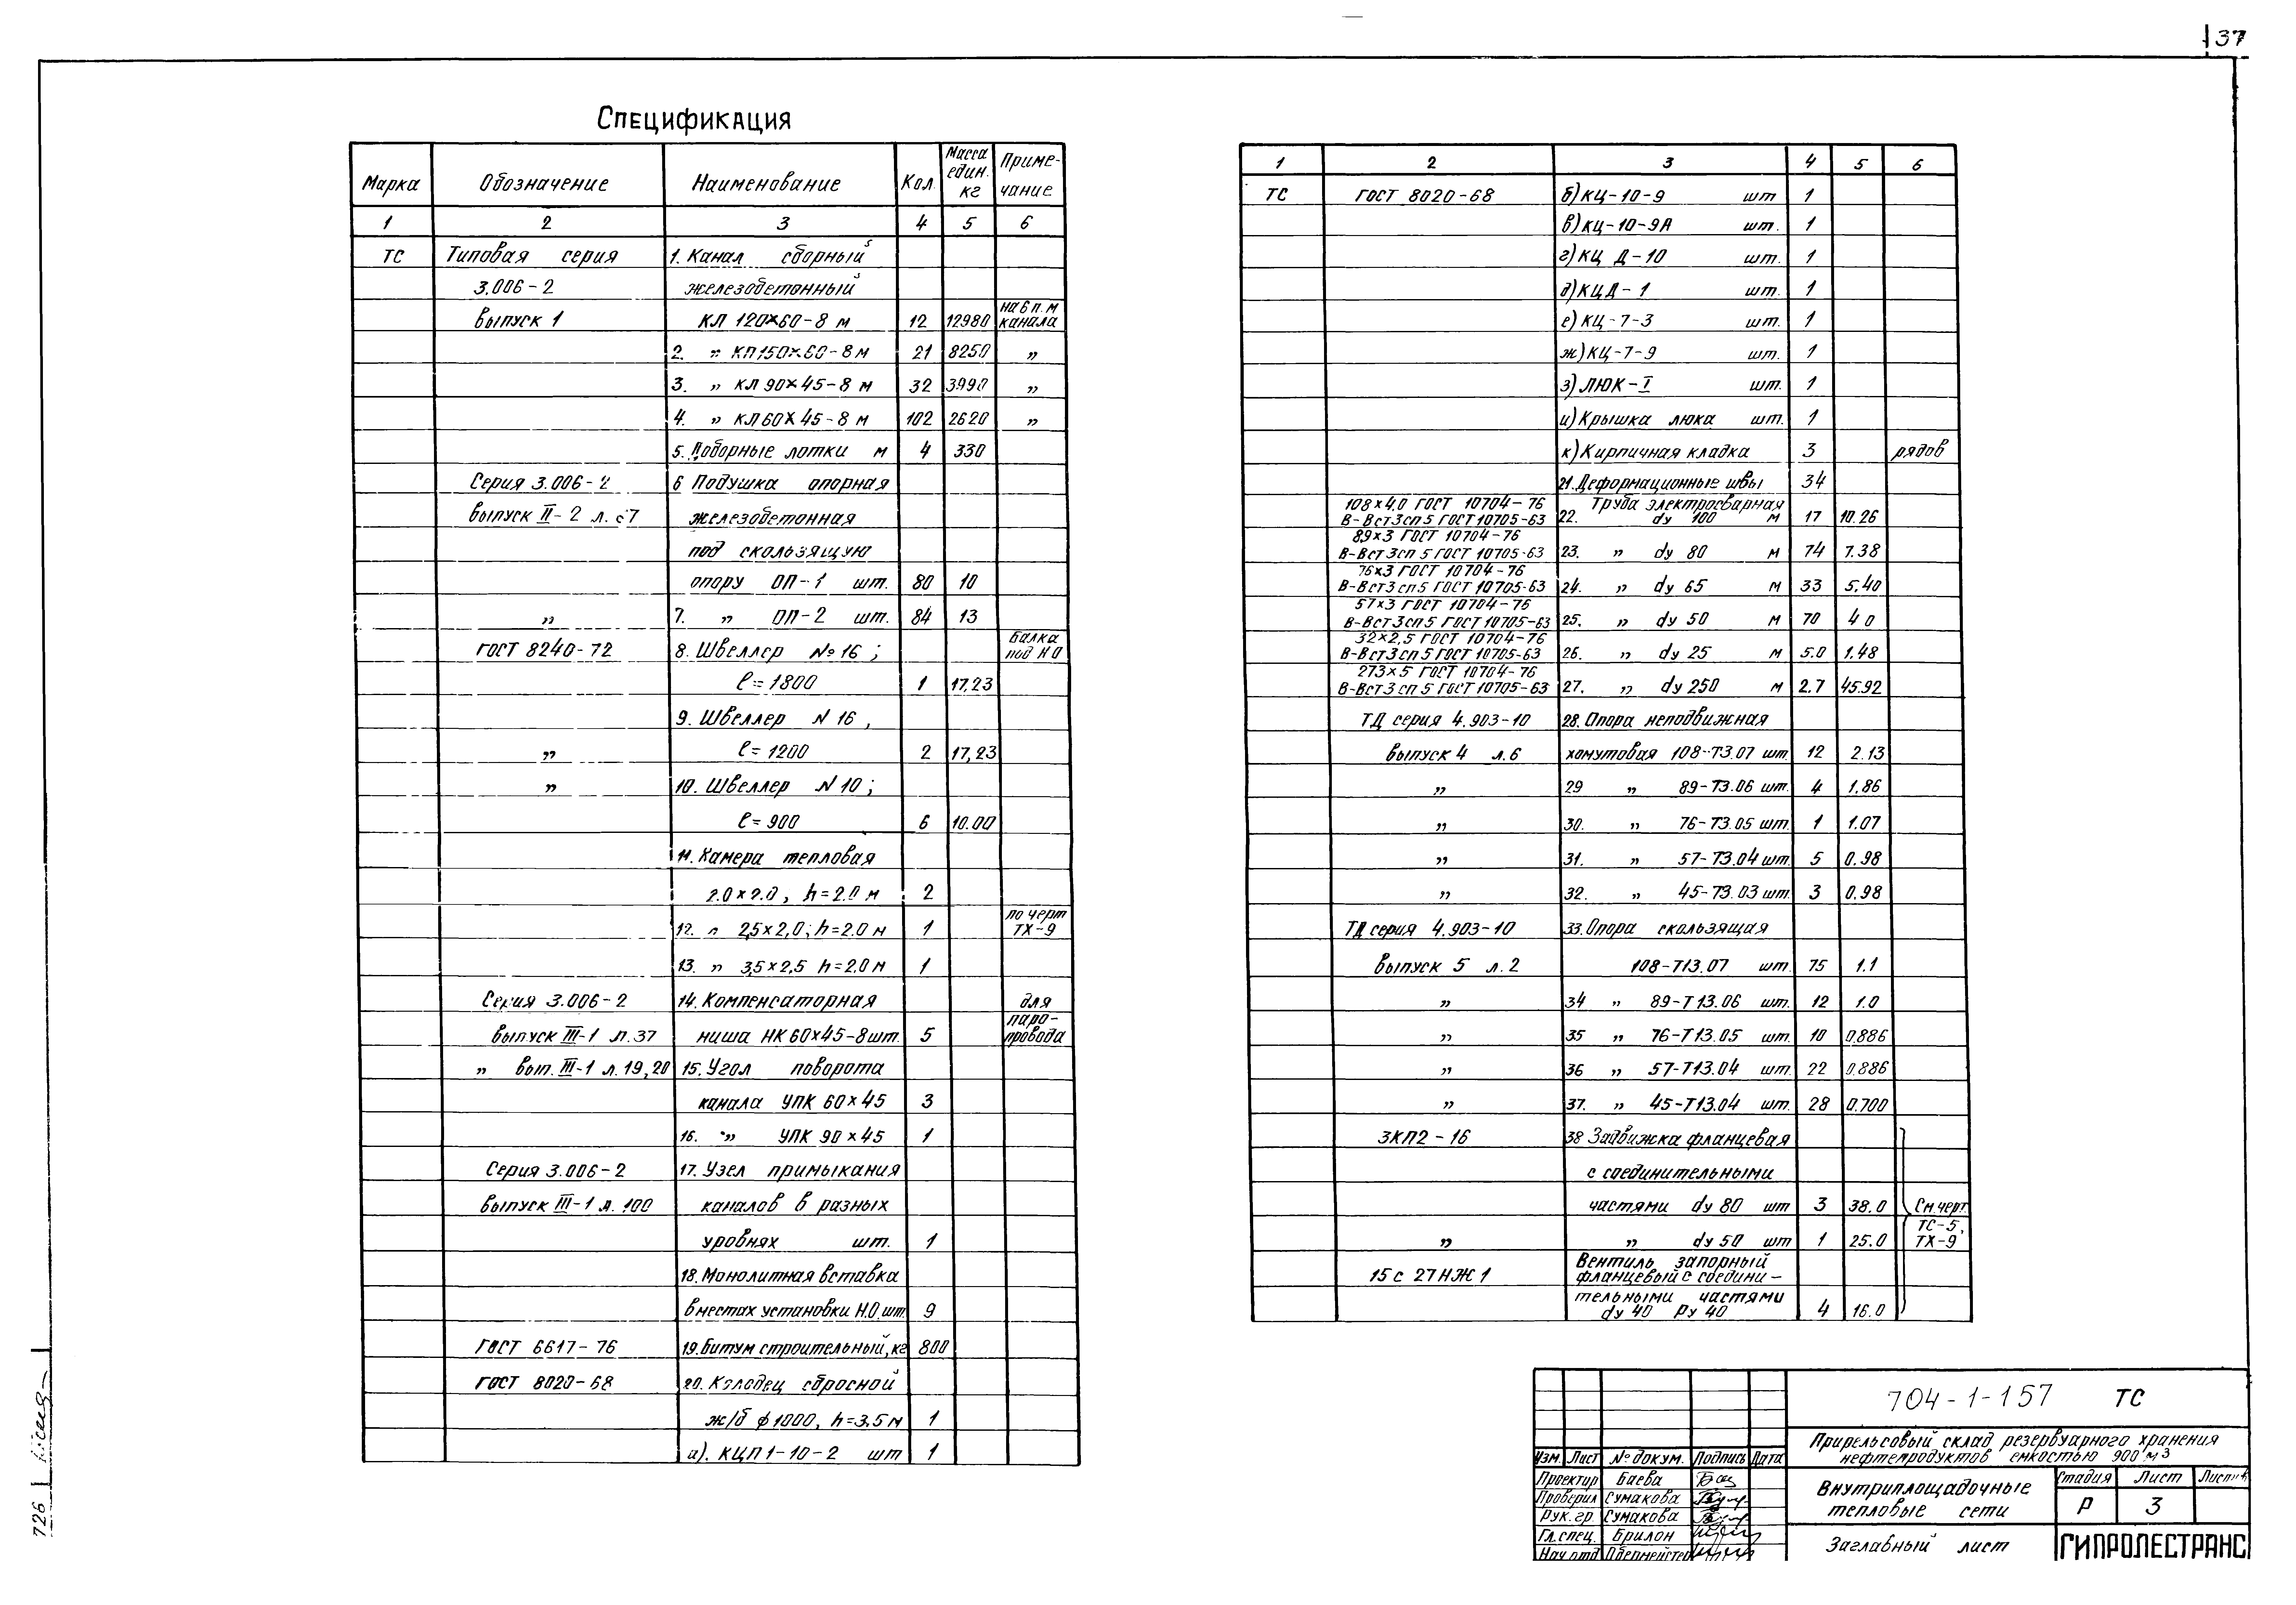 37
Спецификация
Марка Обозначение Наименование Кол. Масса един. кг Приме-чание
1 2 3 4 5 6
ТС Типовая серия 1. Канал сборный
3.006-2 железобетонный
выпуск 1 КЛ 120×60-8 м 12 12980 на 6 п.м канала
2. „ КЛ 150×60-8 м 21 8250 „
3. „ КЛ 90×45-8 м 32 3990 „
4. „ КЛ 60×45-8 м 102 2620 „
5. Доборные лотки м 4 330
Серия 3.006-2 6 Подушка опорная
выпуск II-2 л. 67 железобетонная
под скользящую
опору ОП-1 шт. 80 10
„ 7. „ ОП-2 шт. 84 13
ГОСТ 8240-72 8. Швеллер №16; балка под Н.О
ℓ=1800 1 17,23
9. Швеллер N 16,
„ ℓ=1200 2 17,23
„ 10. Швеллер N 10;
ℓ=900 6 10.00
11. Камера тепловая
2.0×2.0, h=2.0 м 2
12. „ 2,5×2,0; h=2.0 м 1 по черт ТХ-9
13. „ 3,5×2,5 h=2.0 м 1
Серия 3.006-2 14. Компенсаторная для
выпуск III-1 л.37 ниша НК 60×45-8 шт. 5 паро-провода
„ вып. III-1 л.19,20 15. Угол поворота
канала УПК 60×45 3
16. „ УПК 90×45 1
Серия 3.006-2 17. Узел примыкания
выпуск III-1 л. 100 каналов в разных
уровнях шт. 1
18. Монолитная вставка
в местах установки Н.О. шт. 9
ГОСТ 6617-76 19. Битум строительный, кг 800
ГОСТ 8020-68 20. Колодец сбросной
ж/б ф1000, h=3.5 м 1
а). КЦП 1-10-2 шт 1
1 2 3 4 5 6
ТС ГОСТ 8020-68 б) КЦ-10-9 шт 1
в) КЦ-10-9А шт. 1
г) КЦ Д-10 шт. 1
д) КЦД-1 шт. 1
е) КЦ-7-3 шт. 1
ж) КЦ-7-9 шт. 1
з) ЛЮК-I шт. 1
и) Крышка люка шт. 1
к) Кирпичная кладка 3 рядов
21. Деформационные швы 34
108×4,0 ГОСТ 10704-76 Труба электросварная
В-Вст3сп5 ГОСТ 10705-63 22. dу 100 м 17 10.26
89×3 ГОСТ 10704-76
В-Вст3сп5 ГОСТ 10705-63 23. „ dу 80 м 74 7.38
76×3 ГОСТ 10704-76
В-Вст3сп.5 ГОСТ 10705-63 24. „ dу 65 м 33 5,40
57×3 ГОСТ 10704-76
В-Вст3сп5 ГОСТ 10705-63 25. „ dу 50 м 70 4 0
32×2,5 ГОСТ 10704-76
В-Вст3сп5 ГОСТ 10705-63 26. „ dу 25 м 5.0 1,48
273×5 ГОСТ 10704-76
В-Вст3сп5 ГОСТ 10705-63 27. „ dу 250 м 2.7 45.92
ТД серия 4.903-10 28. Опора неподвижная
выпуск 4 л.6 хомутовая 108-Т3.07 шт 12 2.13
„ 29 „ 89-Т3.06 шт. 4 1.86
„ 30. „ 76-Т3.05 шт. 1 1.07
„ 31. „ 57-Т3.04 шт. 5 0.98
„ 32. „ 45-Т3.03 шт. 3 0.98
ТД серия 4.903-10 33. Опора скользящая
выпуск 5 л.2 108-Т13.07 шт. 75 1.1
„ 34 „ 89-Т13.06 шт. 12 1.0
„ 35 „ 76-Т13.05 шт. 10 0,886
„ 36 „ 57-Т13.04 шт. 22 0.886
„ 37. „ 45-Т13.04 шт. 28 0.700
ЗКП2-16 38 Задвижка фланцевая
с соединительными
частями dу 80 шт 3 38.0 См.черт.
„ „ dу 50 шт 1 25.0 ТС-5, ТХ-9
15 с 27 НЖ 1 Вентиль запорный
фланцевый с соедини-
тельными частями
dу 40 Ру 40 4 16.0
704-1-157 ТС
Прирельсовый склад резервуарного хранения
нефтепродуктов емкостью 900 м3
Изм. Лист № докум. Подпись Дата
Проектир Баева
Проверил Сумакова
Рук. гр Сумакова
Гл. спец. Брилон
Нач отд Обермейстер
Внутриплощадочные
тепловые сети
Стадия Лист Листов
Р 3
Заглавный лист
ГИПРОЛЕСТРАНС
726